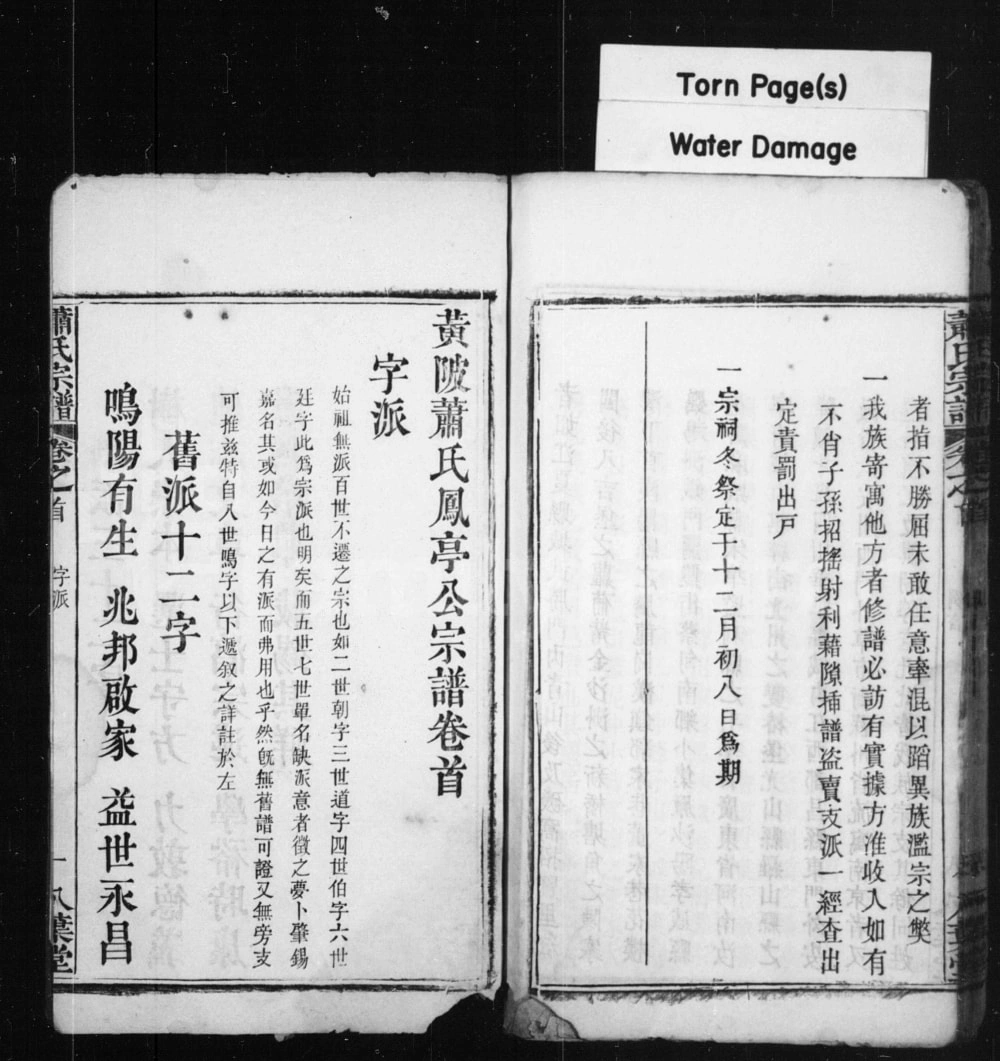 Torn Page(s)
Water Damage
者指不勝屈未敢任意牽混以蹈異族濫宗之獘
一我族寄寓他方者修譜必訪有實據方准收入如有
不肖子孫招搖射利藉隙揷譜盜賣支派一經查出
定責罰出戸
一宗祠冬祭定于十二月初八日爲期
黃陂蕭氏鳳亭公宗譜卷首
字派
始祖無派百世不遷之宗也如二世朝字三世道字四世伯字六世
廷字此爲宗派也明矣而五世七世單名缺派意者徵之夢卜肇錫
嘉名其或如今日之有派而弗用也乎然旣無舊譜可證又無旁支
可推兹特自八世鳴字以下遞叙之詳註於左
舊派十二字
鳴陽有生 兆邦啟家 益世永昌
蕭氏宗譜 卷之首 字派 一 八葉堂